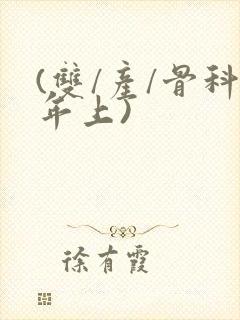 (雙/產/骨科
年上)
徐有霞